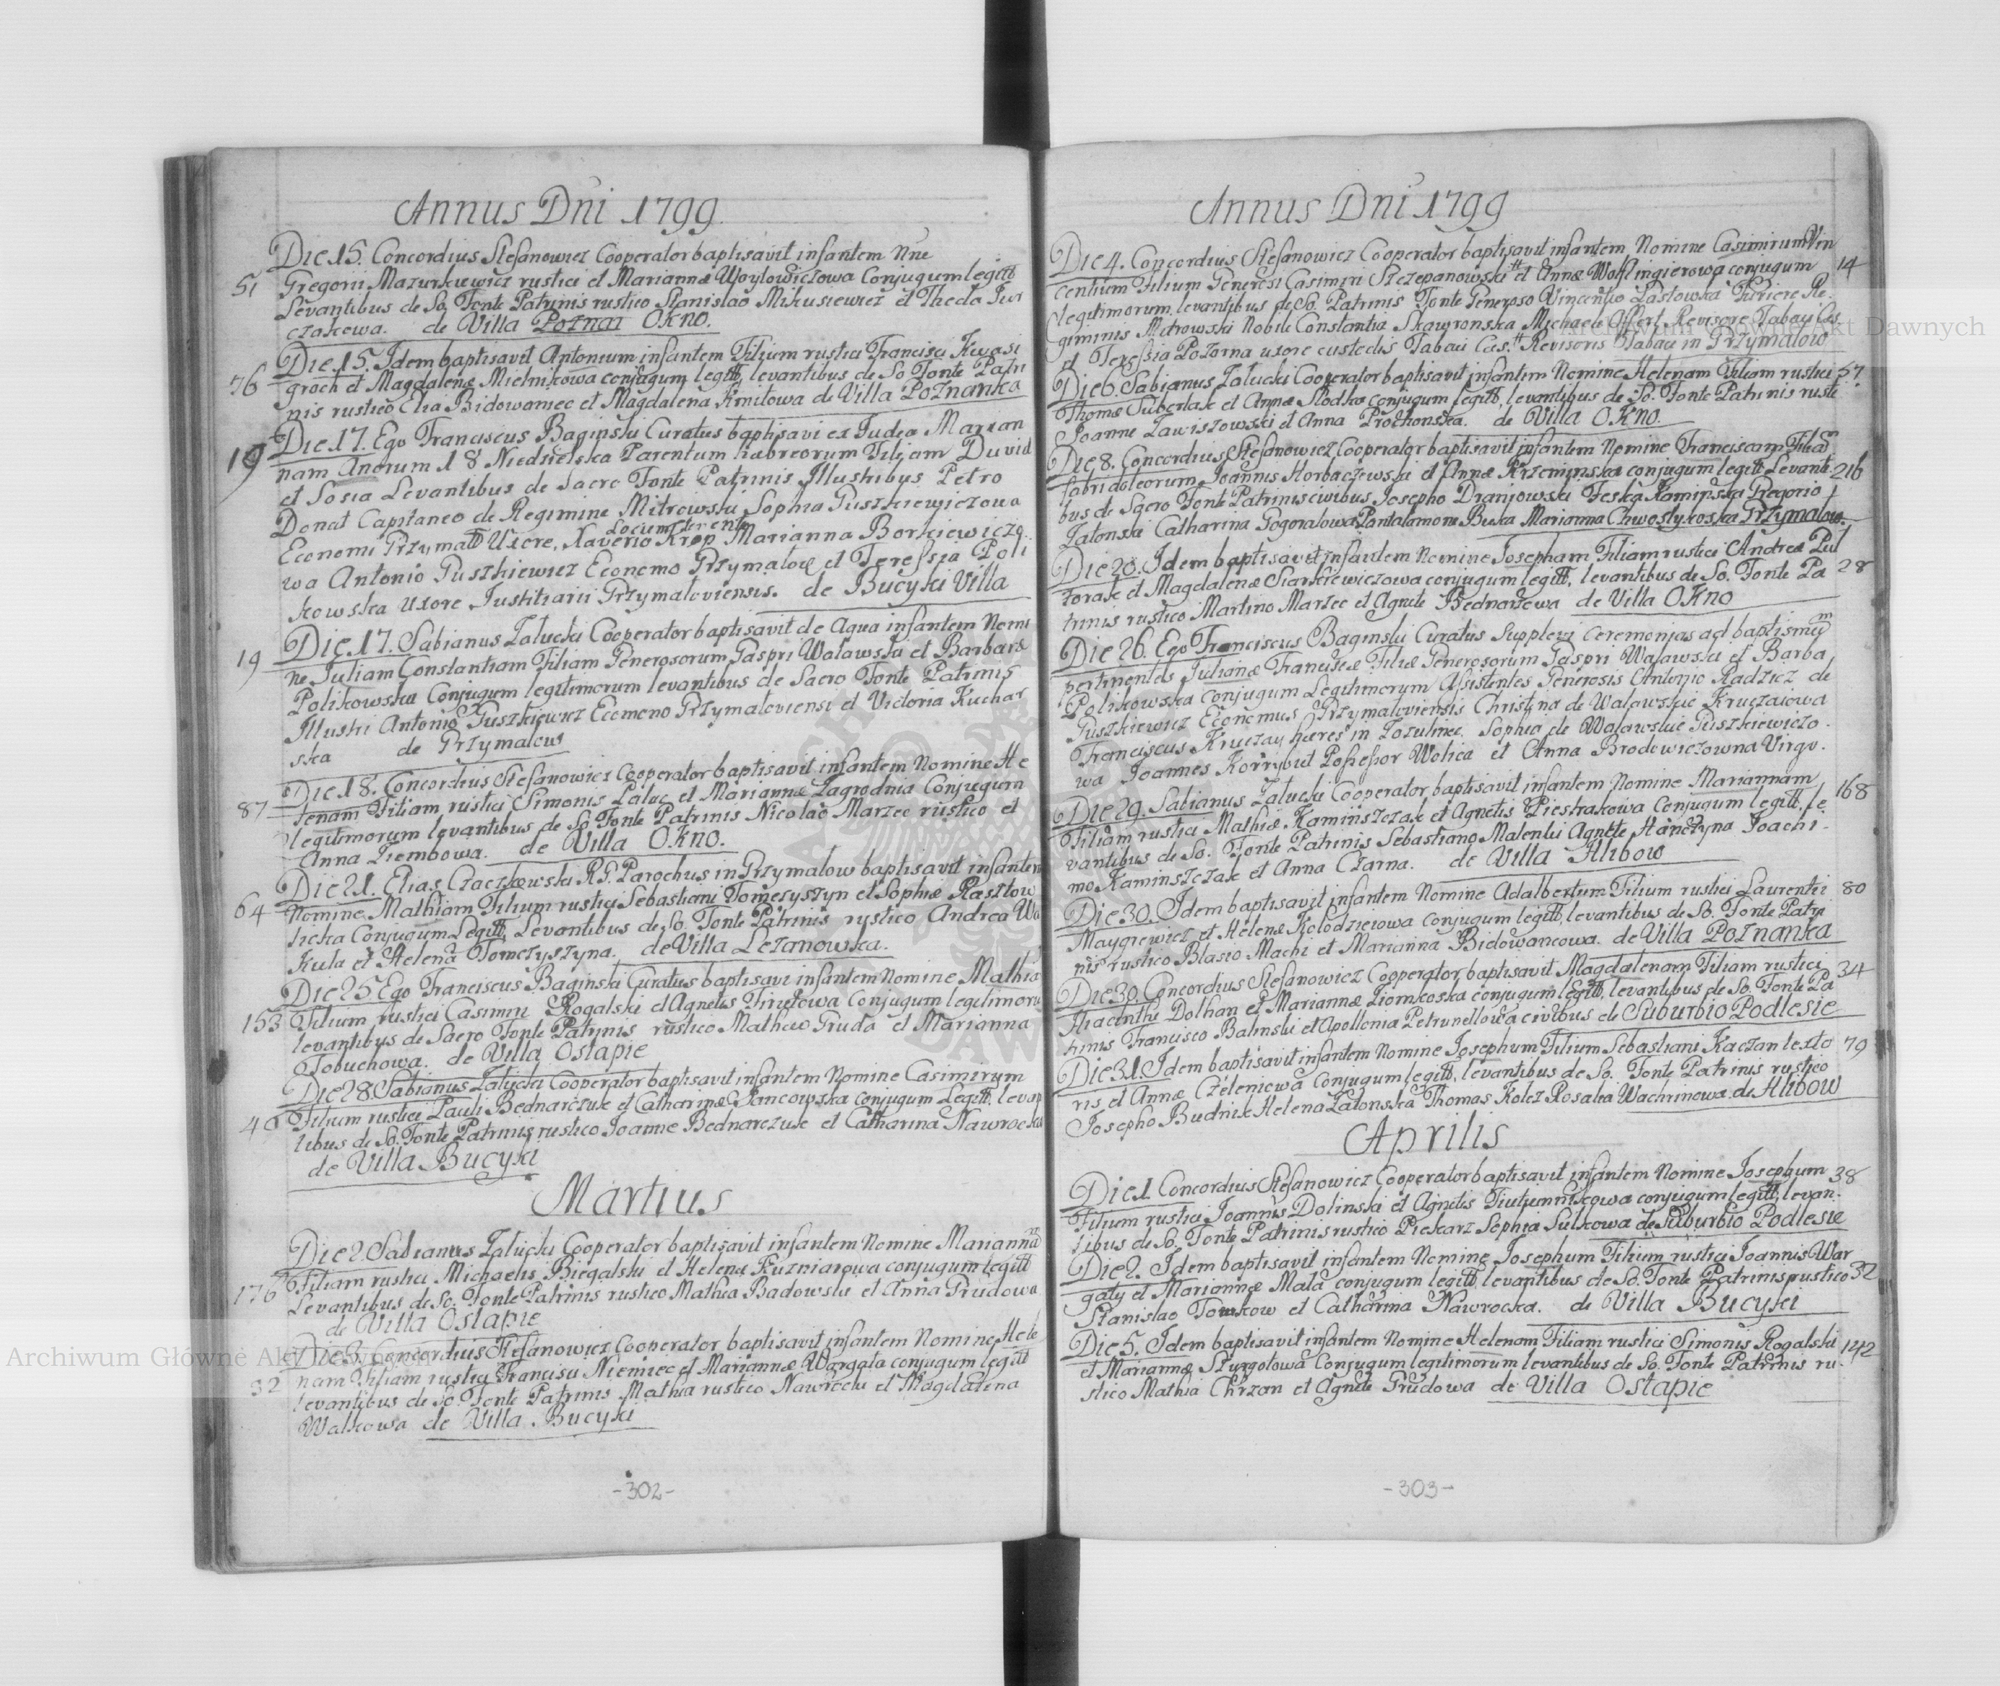 Annus Dni 1799.
Die 15. Concordius Stefanowicz Cooperator baptisavit infantem Nne
51 Gregorii Mazurkiewicz rustici et Mariannæ Woytowiczowa Conjugum legitt
Levantibus de So. Fonte Patrinis rustico Stanislao Mikusiewicz et Thecla Juri
czakowa. de Villa Poznan Okno.
Die 15. Idem baptisavit Antonium infantem Filium rustici Francisci Kwasi
76 groch et Magdalenæ Mielnikowa conjugum legitt, levantibus de So. Fonte Patri
nis rustico Elia Bidowaniec et Magdalena Kmitowa de Villa Poznanka
Die 17. Ego Franciscus Baginski Curatus baptisavi ex Judea Marian
19 nam Anorum 18 Niedzielska Parentum hæbreorum Filiam Duvid
et Sosia Levantibus de Sacro Fonte Patrinis Illustribus Petro
Donat Capitaneo de Regimine Mitrowski Sophia Puszkiewiczowa
Locumtenente
Economi Przymałł Uxore, Xaverio Krop Marianna Borkiewiczo
wa Antonio Puszkiewicz Economo Przymaloў et Teressia Poli
kowska uxore Justitiarii Przymaloviensis. de Bucyki Villa
Die 17. Sabianus Zalucki Cooperator baptisavit de Aqua infantem Nomi
19 ne Juliam Constantiam Filiam Generosorum Gaspri Walawski et Barbaræ
Polikowska Conjugum legitimorum levantibus de Sacro Fonte Patrinis
Illustri Antonio Puszkiewicz Economo Przymaloviensi et Victoria Kuchar
ska de Przymalow
Die 18. Concordius Stefanowicz Cooperator baptisavit infantem Nomine He
87 lenam Filiam rustici Simonis Laluc et Mariannæ Zagrodnia Conjugum
legitimorum levantibus de So. Fonte Patrinis Nicolao Marzec rustico et
Anna Ziembowa. de Villa Okno.
Die 21. Elias Czaczkowski R.G. Parochus in Przymalow baptisavit infantem
64 Nomine Mathiam Filium rustici Sebastiani Tomczyszyn et Sophiæ Raszlow
licka Conjugum Legitt, Levantibus de So. Fonte Patrinis rustico Andrea Wa
kula et Helena Tomczyszyna. de Villa Lezanowska.
Die 25 Ego Franciscus Baginski Curatus baptisavi infantem Nomine Mathia
153 Filium rustici Casimiri Rogalski et Agnetis Firutowa Conjugum legitimoru
levantibus de Sacro Fonte Patrinis rustico Matheo Gruda et Marianna
Tobuchowa. de Villa Ostapie
Die 28. Sabianus Zalucki Cooperator baptisavit infantem Nomine Casimirum
Filium rustici Pauli Bednarczuk et Catharinæ Jancowska conjugum Legitt, levan
tibus de So. Fonte Patrinis rustico Joanne Bednarczuk et Catharina Nawrocka
de Villa Bucyki
Martius
Die 2. Sabianus Zalucki Cooperator baptisavit infantem Nomine Marianna
176 Filiam rustici Michaelis Biegalski et Helena Kuzniarowa conjugum legitt
Levantibus de So. Fonte Patrinis rustico Mathia Badowski et Anna Grudowa
de Villa Ostapie
Die 3. Concordius Stefanowicz Cooperator baptisavit infantem Nomine Hele
32 nam Filiam rustici Francisci Niemiec et Mariannæ Wargata conjugum legitt
levantibus de So. Fonte Patrinis Mathia rustico Nawrocki et Magdalena
Walkowa de Villa Bucyki
-302-
Annus Dni 1799
Die 4. Concordius Stefanowicz Cooperator baptisavit infantem Nomine Casimirum Vin
centium Filium Generosi Casimiri Szczepanowski et Annæ Wolflingierowa conjugum 14
legitimorum, levantibus de So. Patrinis Fonte Generoso Vincentio Lastowska Furiere Re
giminis Metrowski Nobile Constantia Skawronska Michaele Revisore Tabaci Cæs.
et Teressia Pozorna uxore custodis Tabaci Cæs. Revisoris Tabaci in Przymalow
Die 6. Sabianus Zalucki Cooperator baptisavit infantem Nomine Helenam Filiam rustici 57
Thomæ Suberlak et Annæ Slodka conjugum legitt, levantibus de So. Fonte Patrinis rusti
Joanne Zawiszowski et Anna Prochonska. de Villa Okno.
Die 8. Concordius Stefanowicz Cooperator baptisavit infantem Nomine Franciscam Filiam
fabri doleorum Joannis Horbaczewski et Annæ Krzeminska conjugum legitt Levanti 216
bus de Sacro Fonte Patrinis civibus Josepho Dranjowski Teska Kaminska Gregorio
Jatonski Catharina Gogoralowa Pantalamone Buka Marianna Chwostykoska Przymalow.
Die 20. Idem baptisavit infantem Nomine Josepham Filiam rustici Andreæ Pul
torak et Magdalenæ Siarkiewiczowa conjugum legitt, levantibus de So. Fonte Pa 28
trinis rustico Martino Marzec et Agnete Bednarzowa de Villa Okno
Die 26. Ego Franciscus Baginski Curatus Supplevi Ceremonias ad baptismum
pertinentes Julianæ Franciscæ Filiæ Generosorum Gaspri Walawski et Barba
Polikowska Conjugum Legitimorum Asistentes Generosis Antonio Radzicz de
Puszkiewicz Economus Przymaloviensis Christina de Walawskie Kruczaiowa
Franciscus Kruczay hæres in Tozulince. Sophia de Walawskie Puszkiewiczo
wa Joannes Korrybut Possessor Wolica et Anna Brodowiczowna Virgo.
Die 29. Sabianus Zalucki Cooperator baptisavit infantem Nomine Mariannam 168
Filiam rustici Mathiæ Kaminszczak et Agnetis Piestrakowa Conjugum legitt, le
vantibus de So. Fonte Patrinis Sebastiano Malenki Agnete Hanczyna Joachi
mo Kaminszczak et Anna Czarna. de Villa Hlibow
Die 30. Idem baptisavit infantem Nomine Adalbertum Filium rustici Laurentii 80
Maygrewicz et Helenæ Kolodzieiowa conjugum legitt, levantibus de So. Fonte Patri
nis rustico Blasio Machi et Marianna Bidowancowa. de Villa Poznanka
Die 30. Concordius Stefanowicz Cooperator baptisavit Magdalenam Filiam rustici 34
Hiacinthi Dolhan et Mariannæ Ziomkoska conjugum legitt, levantibus de So. Fonte Pa
trinis Francisco Balinski et Apollonia Petrunellowa civibus de Suburbio Podlesie
Die 31. Idem baptisavit infantem Nomine Josephum Filium Sebastiani Kaczan texto 79
ris et Annæ Czeleniowa Conjugum legitt, levantibus de So. Fonte Patrinis rustico
Josepho Budnik Helena Zatonska Thomas Kolcz Rosalia Wachrinowa de Hlibow
Aprilis
Die 1 Concordius Stefanowicz Cooperator baptisavit infantem Nomine Josephum 38
Filium rustici Joannis Dolinski et Agnetis Tiutiumnikowa conjugum legitt, levan
tibus de So. Fonte Patrinis rustico Piekarz Sophia Sulkowa de Suburbio Podlesie
Die 2. Idem baptisavit infantem Nomine Josephum Filium rustici Joannis War
galy et Mariannæ Mata conjugum legitt, levantibus de So. Fonte Patrinis rustico 32
Stanislao Tomkow et Catharina Nawrocka. de Villa Bucyki
Die 5. Idem baptisavit infantem Nomine Helenam Filiam rustici Simonis Rogalski
et Mariannæ Szurgotowa Conjugum legitimorum levantibus de So. Fonte Patrinis ru 142
stico Mathia Chrzan et Agnete Grudowa de Villa Ostapie
-303-
Archiwum Główne Akt Dawnych
Archiwum Główne Akt Dawnych